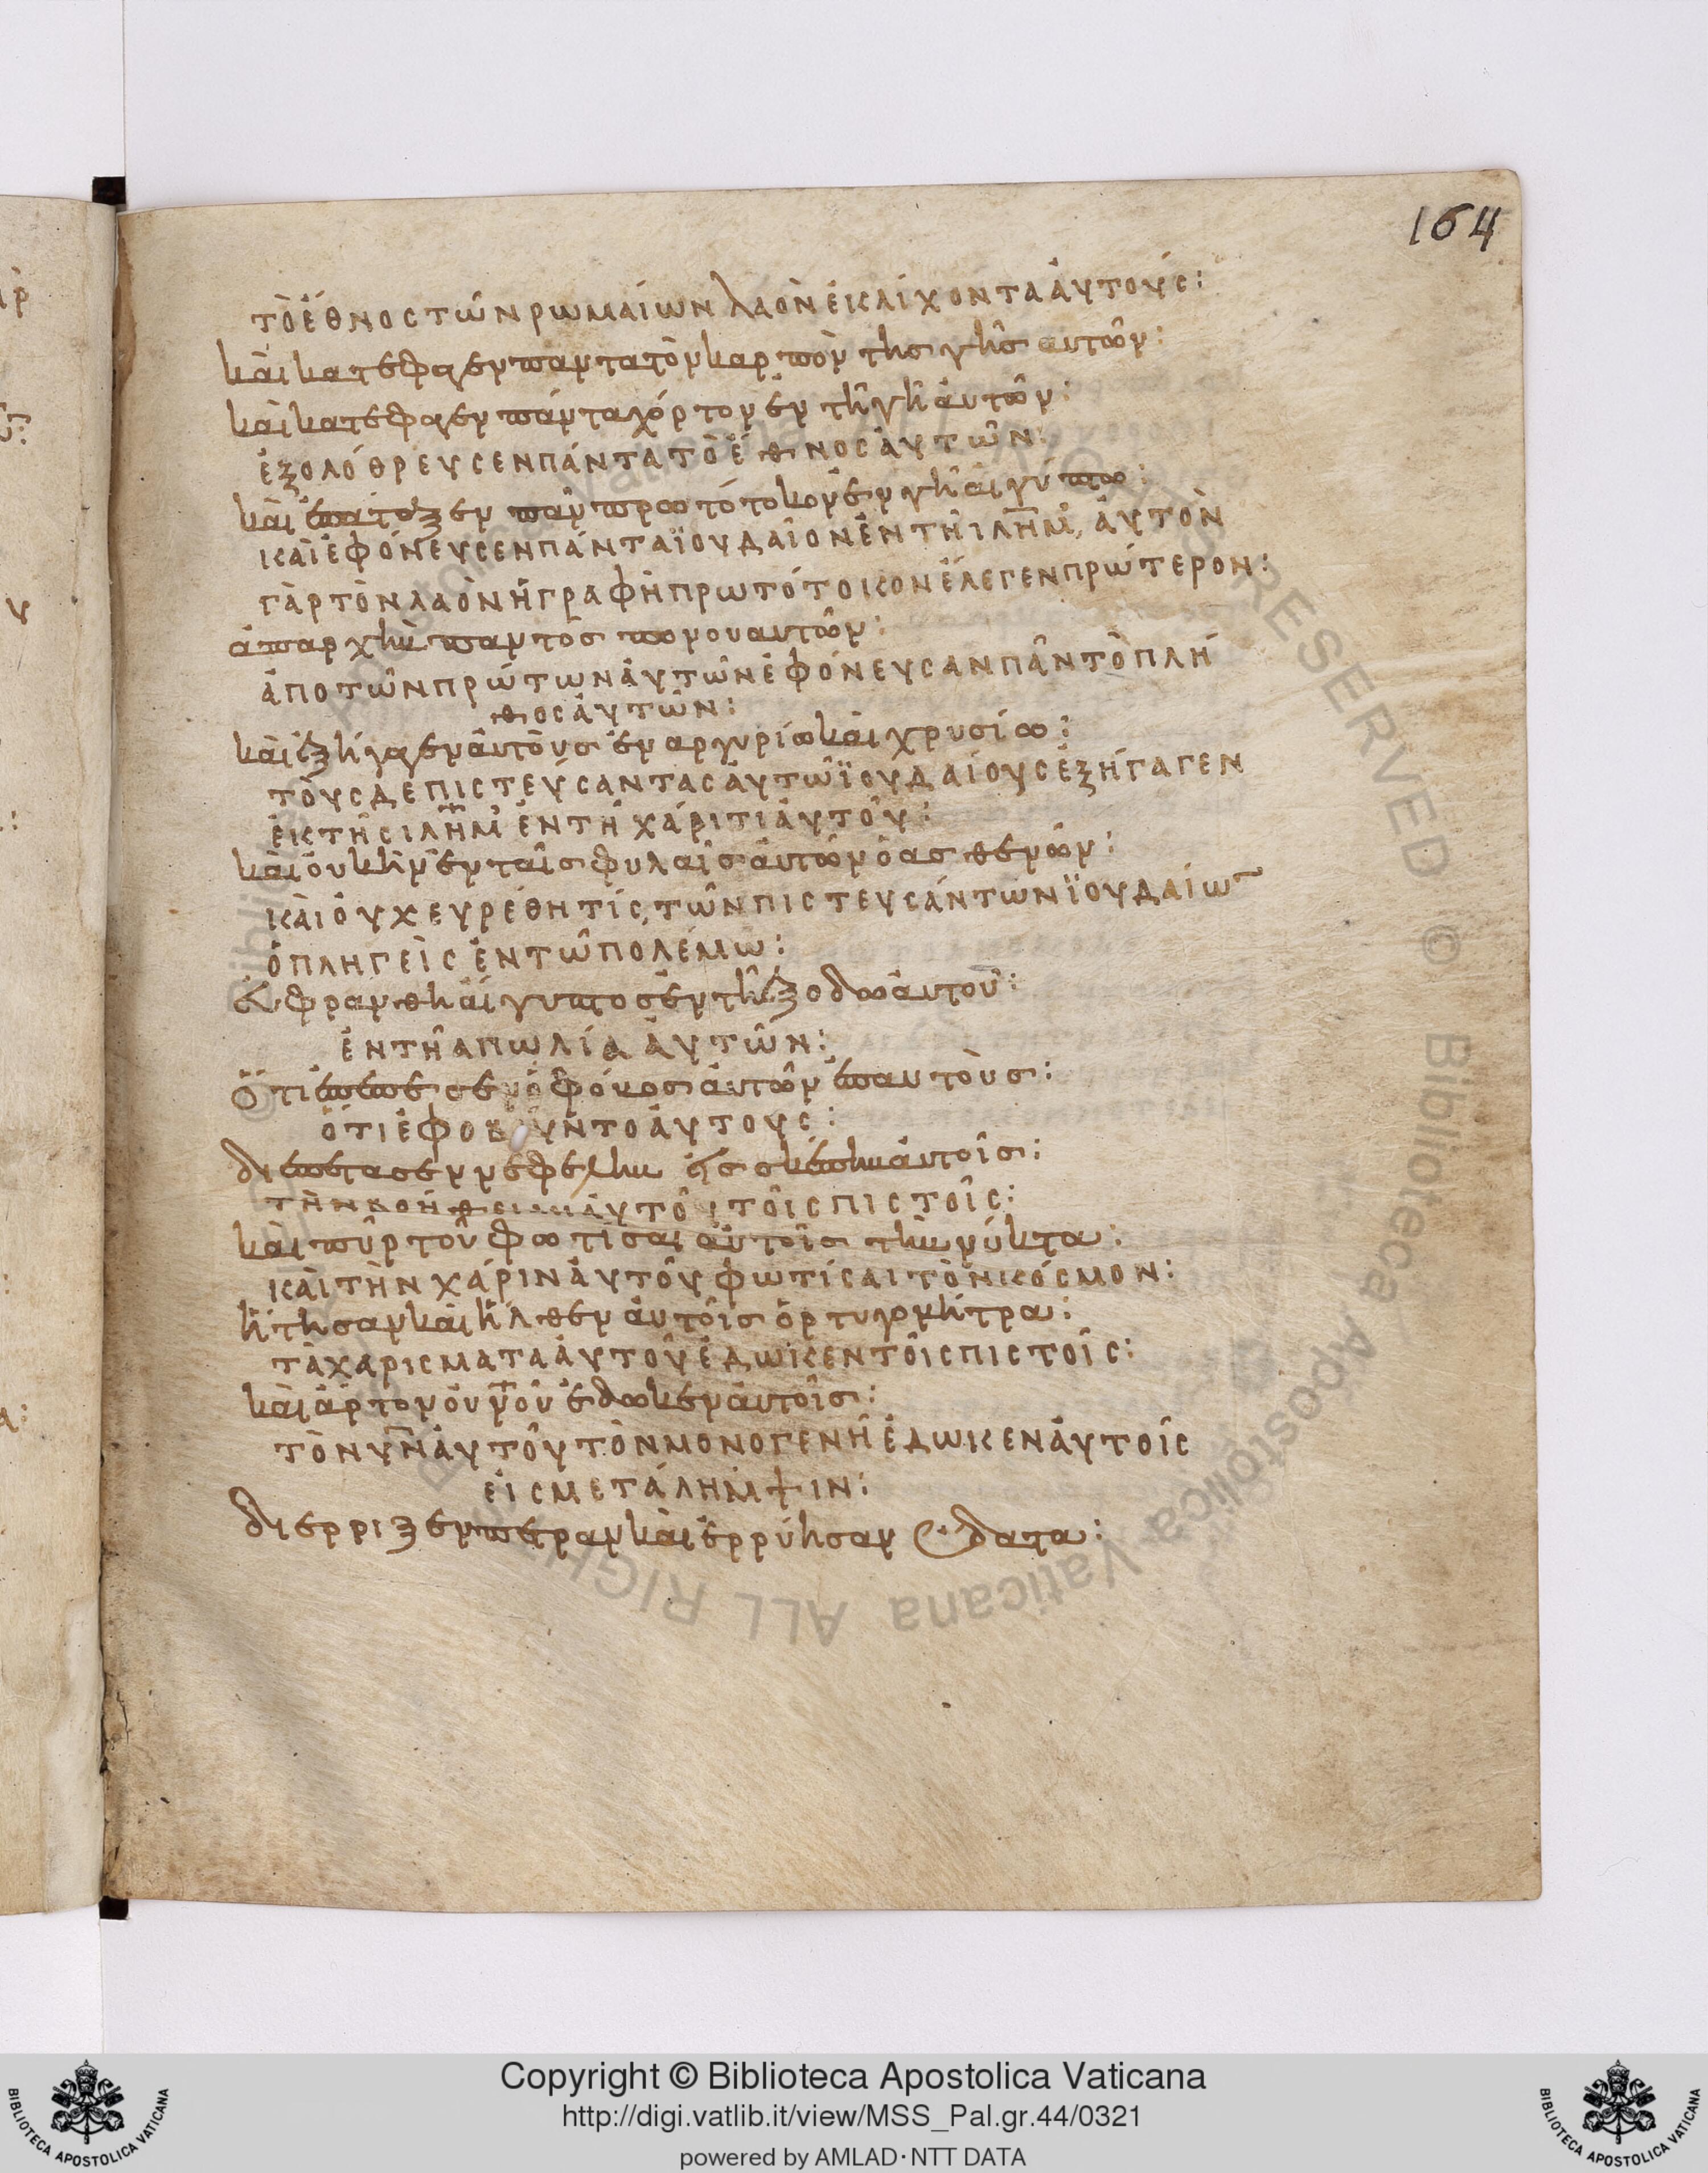 164
τὸ ἔθνος τῶν ρωμαίων λαὸν ἐκλίχοντα ἀυτούς:
καὶ κατέφαγεν παντα τὸν καρπὸν της γῆς αυτῶν:
καὶ κατέφαγεν πάντα χόρτον ἐν τῆ γῆ ἀυτῶν:
ἐξολόθρευσεν πάντα τὸ ἔθνος ἀυτῶν:
καὶ ἐπάταξεν πᾶν πρωτότοκον ἐν γῆ ἀιγύπτω:
καὶ ἐφόνευσεν πάντα ϊουδαῖον ἐν τῆ ιλῆμ, ἀυτὸν
γὰρ τὸν λαὸν ἡ γραφὴ πρωτότοκον ἔλεγεν πρώτερον:
ἀπαρχὴν παντὸς πονου αυτῶν:
ἀπο τῶν πρώτων ἀυτῶν ἐφόνευσαν πᾶν τὸ πλή
θος ἀυτῶν:
καὶ ἐξήγαγεν ἀυτὸυς ἐν αργυρίω καὶ χρυσίω:
τὸυς δε πιστεύσαντας ἀυτῶ ϊουδαίους ἐξήγαγεν
ἐκ τῆς ιλῆμ ἐν τῆ χάριτι ἀυτοῦ:
καὶ ὀυκ ἦν ἐν ταῖς φυλαῖς ἀυτῶν ὁ ασθενῶν:
καὶ ὀυχ ευρέθη τίς, τῶν πιστευσάντων ϊουδαίω
ὁ πληγεὶς ἐν τῶ πολέμω:
ἐυφρανθη ἀίγυπτος ἐν τῆ ἐξοδω ἀυτοῦ:
ἐν τῆ απωλία ἀυτῶν:
ὅτι ἐπέπεσεν ὁ φόνος ἀυτῶν ἐπ αυτὸυς:
ὅτι ἐφοβοῦντο ἀυτους:
διεπετασεν νεφέλην εἰς σκέπην ἀυτοῖς:
τὴν βοήθειαν ἀυτοῦ τοῖς πιστοῖς:
καὶ πῦρ τοῦ φωτίσαι ἀυτοῖς τὴν νύκτα:
καὶ τὴν χάριν ἀυτοῦ φωτίσαι τὸν κόσμον:
ἤτησαν καὶ ἦλθεν ἀυτοῖς ὀρτυγομήτρα:
τὰ χαρισματα ἀυτοῦ ἔδωκεν τοῖς πιστοῖς:
καὶ ἄρτον ὀυνοῦ ἐδωκεν ἀυτοῖς:
τὸν υν ἀυτοῦ τὸν μονογενῆ ἔδωκεν ἀυτοῖς
εἰς μετάλημψιν:
διερριξεν πέτραν καὶ ἐρρύησαν ὕδατα:
Copyright © Biblioteca Apostolica Vaticana
http://digi.vatlib.it/view/MSS_Pal.gr.44/0321
powered by AMLAD·NTT DATA
BIBLIOTECA APOSTOLICA VATICANA
BIBLIOTECA APOSTOLICA VATICANA